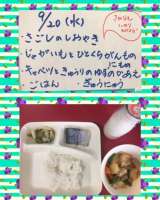 9/20 (水)
・さごしのしおやき
・じゃがいもとひとくちがんもの
にもの
・キャベツときゅうりのゆかりあえ
・ごはん ・ぎゅうにゅう